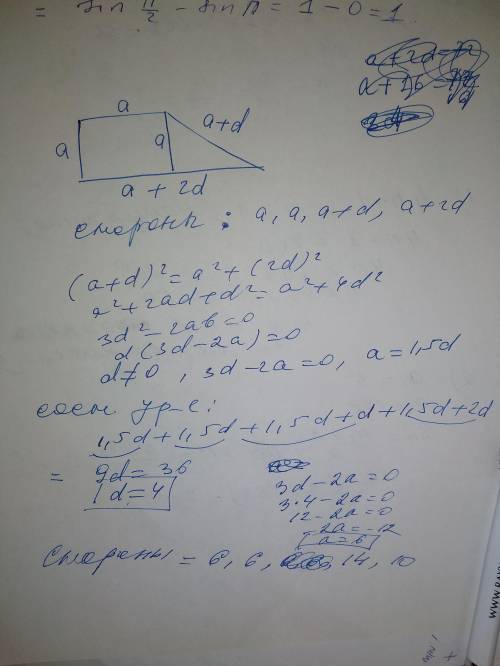 = sin π/2 - sin π = 1 - 0 = 1
a
a
a
a+d
a + 2d
стороны : a, a, a+d, a+2d
(a+d)² = a² + (2d)²
a²+2ad+d² = a²+4d²
3d² - 2ab = 0
d(3d-2a) = 0
d ≠ 0 , 3d-2a=0, a=1,5d
сост ур-е:
1,5d+1,5d+1,5d+d+1,5d+2d
= 9d = 36
d = 4
3d-2a=0
3·4-2a=0
12-2a=0
-2a=-12
a=6
Стороны = 6, 6, 14, 10